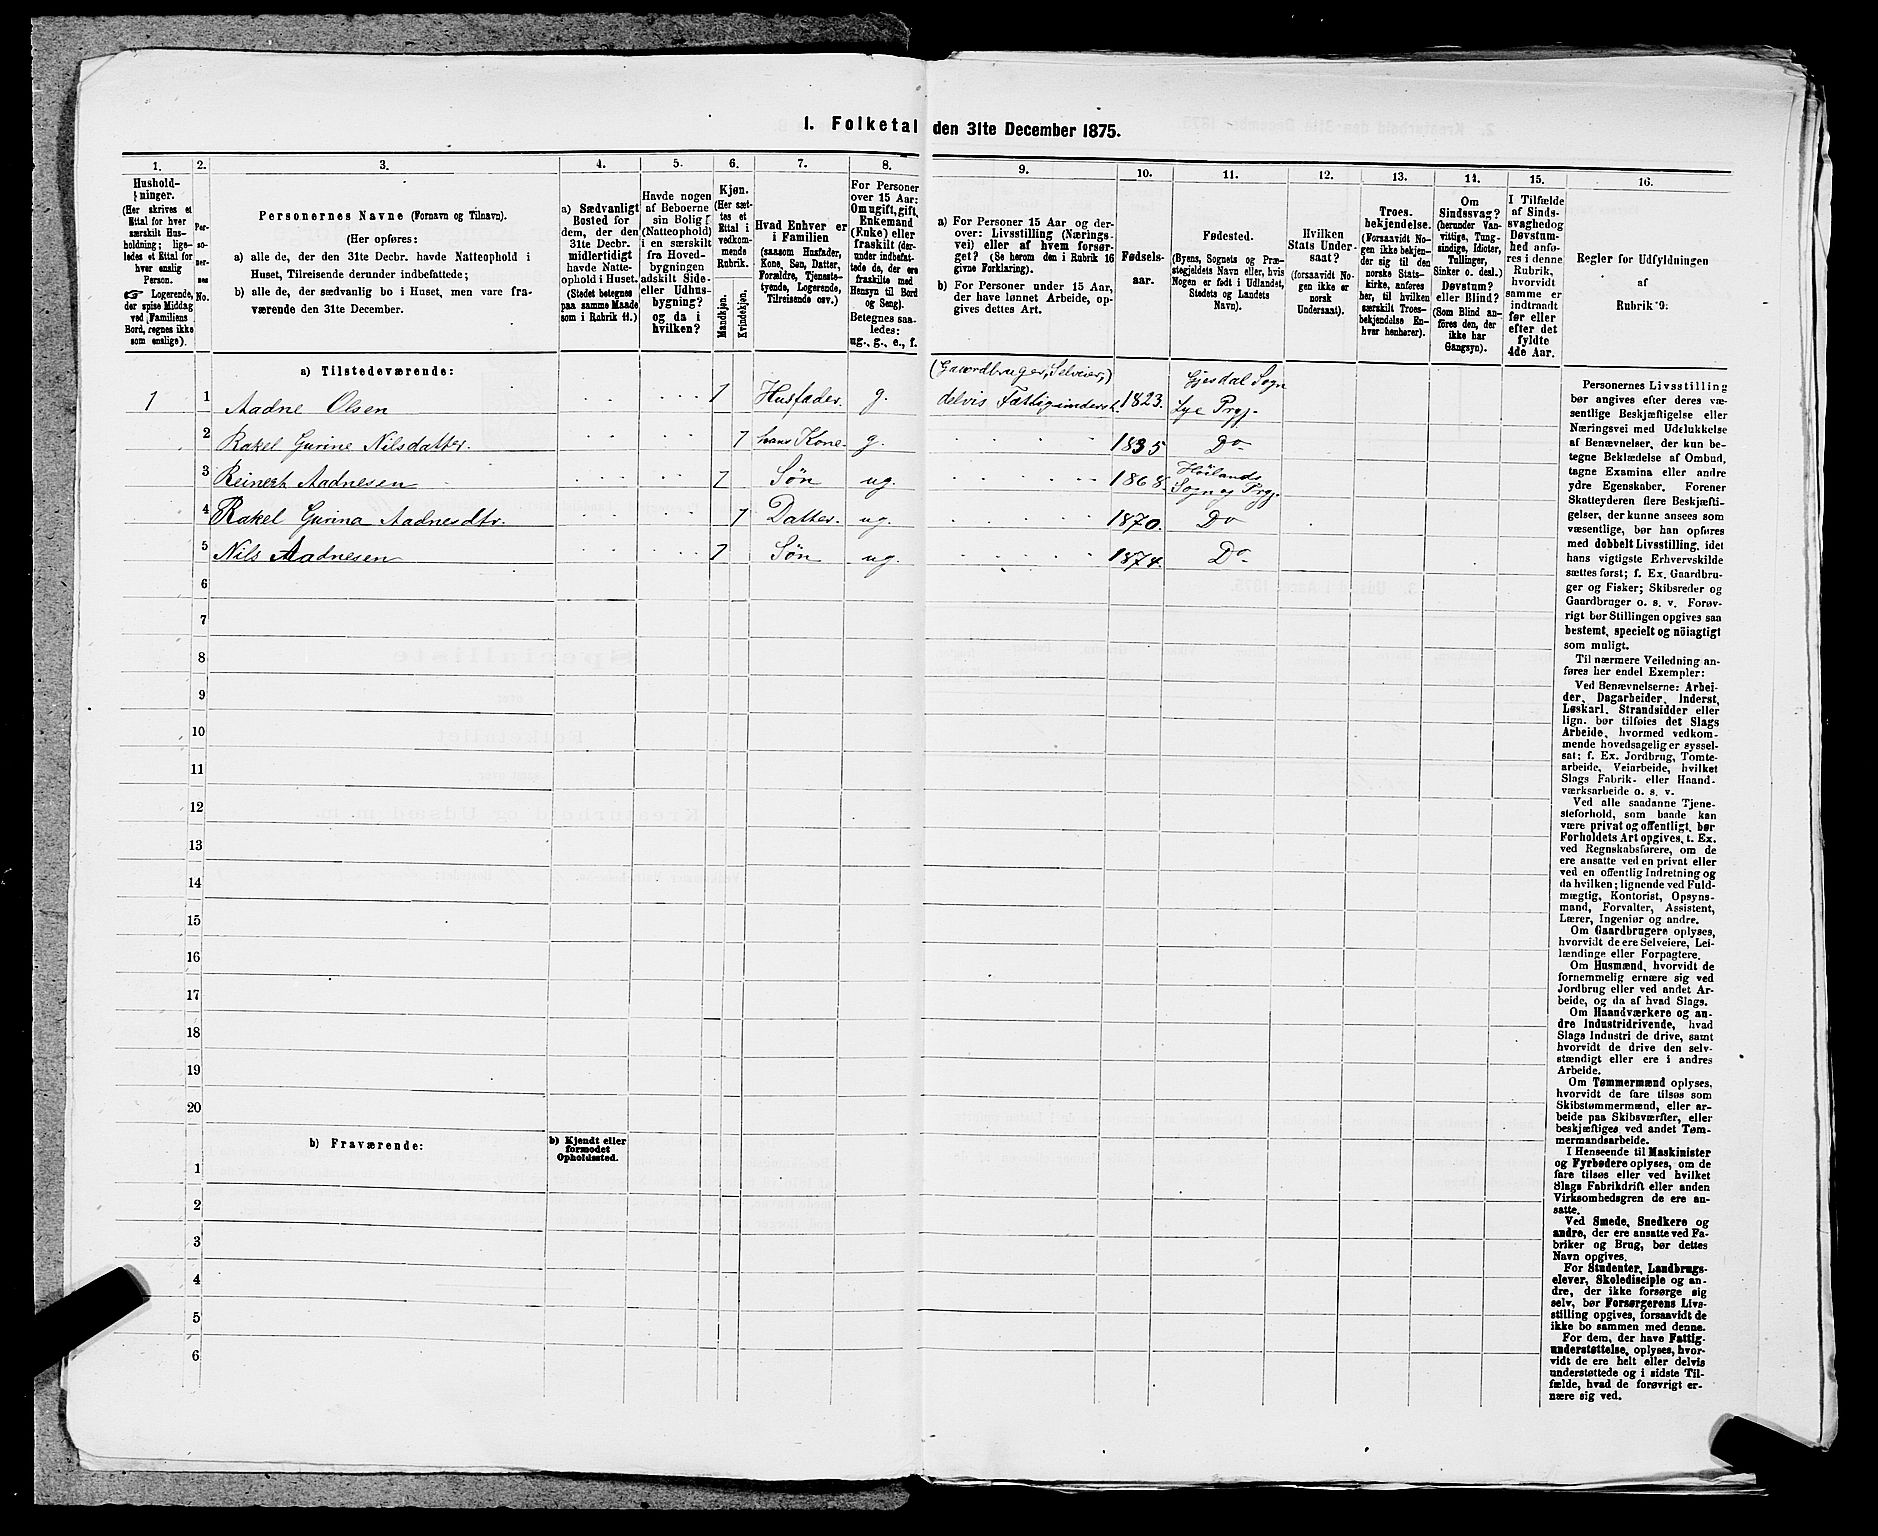 1. Folketal den 31te December 1875.
1. 2. 3. 4. 5. 6. 7. 8. 9. 10. 11. 12. 13. 14. 15. 16.
Hushold-
ninger.
(Her skrives et
Ettal for hver
særskilt Hus-
holdning; lige-
ledes et Ettal for
hver enslig
Person.
☞ Logerende,
der spise Middag
ved Familiens
Bord, regnes ikke
som enslige).
Per-
so-
ner-
nes
No.
Personernes Navne (Fornavn og Tilnavn).
(Her opføres:
a) alle de, der den 31te Decbr. havde Natteophold i
Huset, Tilreisende derunder indbefattede;
b) alle de, der sædvanlig bo i Huset, men vare fra-
værende den 31te December.
a) Sædvanligt
Bosted for
dem, der den
31te Decbr.
midlertidigt
havde Natte-
ophold i Huset.
(Stedet betegnes
paa samme Maade
som i Rubrik 11.)
Havde nogen
af Beboerne
sin Bolig
(Natteophold)
i en særskilt
fra Hoved-
bygningen
adskilt Side-
eller Udhus-
bygning?
og da i
hvilken?
Kjøn.
(Her sæt-
tes et
Ettal i
vedkom-
mende
Rubrik.
Mandkjøn.
Kvindekjøn.
Hvad Enhver er
i Familien
(saasom Husfader,
Kone, Søn, Datter,
Forældre, Tjeneste-
tyende, Logerende,
Tilreisende osv.)
For Personer
over 15 Aar:
Om ugift, gift,
Enkemand
(Enke) eller
fraskilt (der-
under indbefat-
tede de, der ere
fraskilte med
Hensyn til Bord
og Seng).
Betegnes saa-
ledes:
ug., g., e., f.
a) For Personer 15 Aar og der-
over: Livsstilling (Nærings-
vei) eller af hvem forsør-
get? (Se herom den i Rubrik 16
givne Forklaring).
b) For Personer under 15 Aar,
der have lønnet Arbeide, op-
gives dettes Art.
Fødsels-
aar.
Fødested.
(Byens, Sognets og Præ-
stegjeldets Navn eller, hvis
Nogen er født i Udlandet,
Stedets og Landets
Navn).
Hvilken
Stats Under-
saat?
(forsaavidt No-
gen ikke er
norsk
Undersaat).
Troes-
bekjendelse.
(Forsaavidt No-
gen ikke bekjen-
der sig til den
norske Stats-
kirke, anføres
her, til hvilken
særskilt Troes-
bekjendelse En-
hver henhører).
Om
Sindssvag?
(herunder Van-
vittige, Tung-
sindige, Idioter,
Tullinger,
Sinker o. desl.)
Døvstum?
eller Blind?
(Som Blind an-
føres den, der
ikke har
Gangsyn).
I Tilfælde
af Sinds-
svaghedog
Døvstum-
hed anfø-
res i denne
Rubrik,
hvorvidt
samme er
indtraadt
før eller
efter det
fyldte
4de Aar.
Regler for Udfyldningen
af
Rubrik 9:
a) Tilstedeværende:
1 1 Aadne Olsen 1 Husfader. g. (Gaardbruger, Selveier,) delvis Fattigunderst. 1823. Gjesdal Sogn Lye Prgj.
2 Rakel Gurine Nilsdatter. 1 hans Kone. g. 1835 Do
3 Reinert Aadnesen 1 Søn ug. 1868. Höilands Sogn og Prgj.
4 Rakel Gurina Aadnesdtr. 1 Datter. ug. 1870. Do
5 Nils Aadnesen 1 Søn ug. 1874. Do
6
7
8
9
10
11
12
13
14
15
16
17
18
19
20
b) Fraværende:
b) Kjendt eller
formodet
Opholdssted.
1
2
3
4
5
6
Personernes Livsstilling
bør angives efter deres væ-
sentlige Beskjæftigelse eller
Næringsvei med Udelukkelse
af Benævnelser, der kun be-
tegne Beklædelse af Ombud,
tagne Examina eller andre
ydre Egenskaber. Forener
Skatteyderen flere Beskjæfti-
gelser, der kunne ansees som
væsentlige, bør han opføres
med dobbelt Livsstilling, idet
hans vigtigste Erhvervskilde
sættes først; f. Ex. Gaardbru-
ger og Fisker; Skibsreder og
Gaardbruger o. s. v. Forøv-
rigt bør Stillingen opgives saa
bestemt, specielt og nöiagtigt
som muligt.
Til nærmere Veiledning an-
føres her endel Exempler:
Ved Benævnelserne: Arbei-
der, Dagarbeider, Inderst,
Løskarl, Strandsidder eller
lign. bør tilføies det Slags
Arbeide, hvormed vedkom-
mende hovedsagelig er syssel-
sat; f. Ex. Jordbrug, Tomte-
arbeide, Veiarbeide, hvilket
Slags Fabrik- eller Haand-
værksarbeide o. s. v.
Ved alle saadanne Tjene-
steforhold, som baade kan
være privat og offentligt, bør
Forholdets Art opgives, t. Ex.
ved Regnskabsførere, om de
ere ansatte ved en privat eller
ved en offentlig Indretning og
da hvilken; lignende ved Fuld-
mægtig, Kontorist, Opsyns-
mand, Forvalter, Assistent,
Lærer, Ingeniør og andre.
Om Gaardbrugere oplyses,
hvorvidt de ere Selveiere, Lei-
lændinge eller Forpagtere.
Om Husmænd, hvorvidt de
fornemmelig ernære sig ved
Jordbrug eller ved andet Ar-
beide, og da af hvad Slags.
Om Haandværkere og an-
dre Industridrivende, hvad
Slags Industri de drive, samt
hvorvidt de drive den selv-
stændigt eller ere i andres
Arbeide.
Om Tømmermænd oplyses,
hvorvidt de fare tilsøs som
Skibstømmermænd, eller ar-
beide paa Skibsværfter, eller
beskjæftiges ved andet Tøm-
mermandsarbeide.
I Henseende til Maskinister
og Fyrbødere oplyses, om de
fare tilsøs eller ved hvilket
Slags Fabrikdrift eller anden
Virksomhedsgren de ere an-
satte.
Ved Smede, Snedkere og
andre, der ere ansatte ved Fa-
briker og Brug, bør dettes
Navn opgives.
For Studenter, Landbrugs-
elever, Skoledisciple og an-
dre, der ikke forsørge sig
selv, bør Forsørgerens Livs-
stilling opgives, forsaavidt de
ikke bo sammen med denne.
For dem, der have Fattig-
understøttelse, oplyses, hvor-
vidt de ere helt eller delvis
understøttede og i sidste Til-
fælde, hvad de forøvrigt er-
nære sig ved.